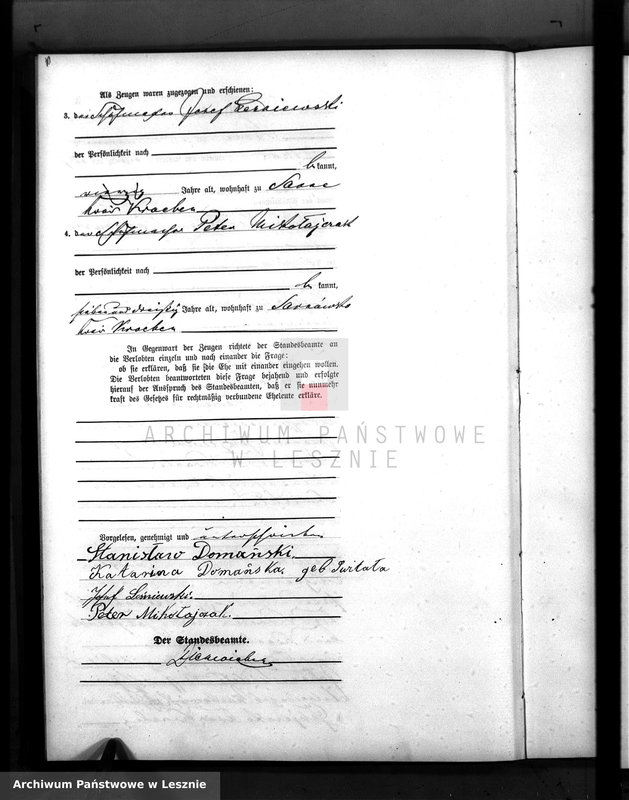 Als Zeugen waren zugezogen und erschienen:
3. der Josef
der Persönlichkeit nach
b kannt,
vierzig Jahre alt, wohnhaft zu Sarne
Kreis Kroeben
4. der Peter Mikołajczak
der Persönlichkeit nach
b kannt,
sieben und dreißig Jahre alt, wohnhaft zu Sarnówko
Kreis Kroeben
In Gegenwart der Zeugen richtete der Standesbeamte an
die Verlobten einzeln und nach einander die Frage:
ob sie erklären, daß sie die Ehe mit einander eingehen wollen.
Die Verlobten beantworteten diese Frage bejahend und erfolgte
hierauf der Ausspruch des Standesbeamten, daß er sie nunmehr
kraft des Gesetzes für rechtmäßig verbundene Eheleute erkläre.
ARCHIWUM PAŃSTWOWE
W LESZNIE
Vorgelesen, genehmigt und unterschrieben
Stanisław Domański.
Katarina Domańska. geb
Josef
Peter Mikołajczak.
Der Standesbeamte.
Archiwum Państwowe w Lesznie